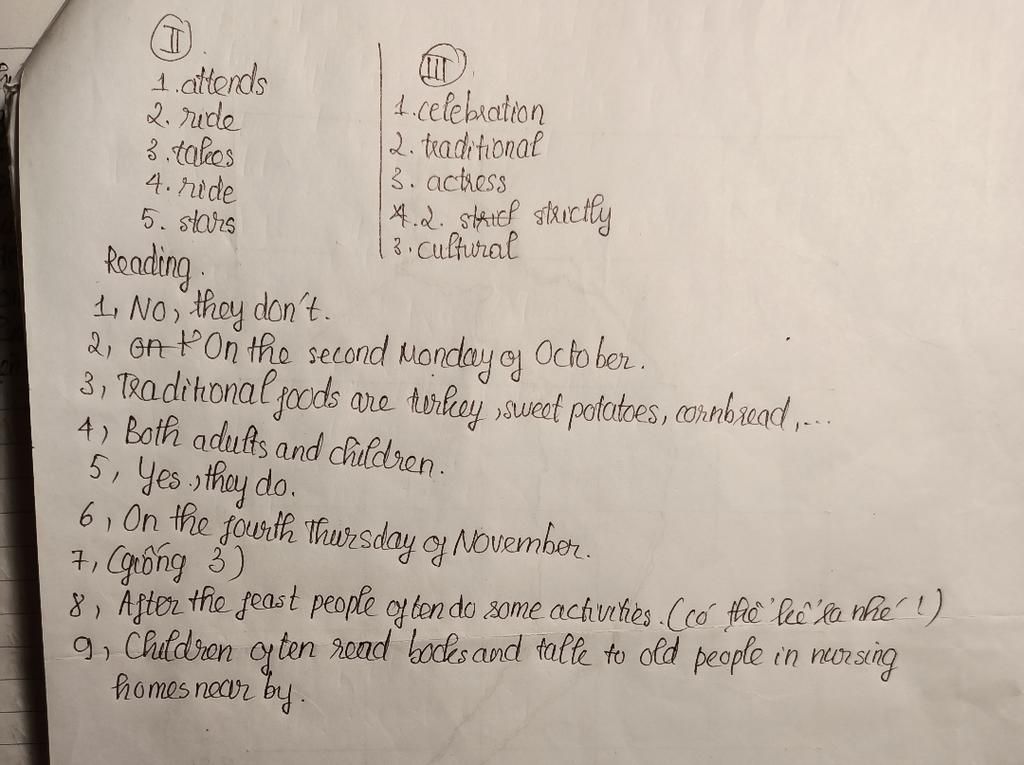 II.
1. attends
2. ride
3. takes
4. ride
5. stars
III.
1. celebration
2. traditional
3. actress
4. 2. strict strictly
3. cultural
Reading.
1, No, they don't.
2, on t On the second Monday of October.
3, Traditional foods are turkey, sweet potatoes, cornbread,...
4, Both adults and children.
5, Yes, they do.
6, On the fourth Thursday of November.
7, (giống 3)
8, After the feast people often do some activities. (có thể kể ra nhé!)
9, Children often read books and talk to old people in nursing
homes near by.